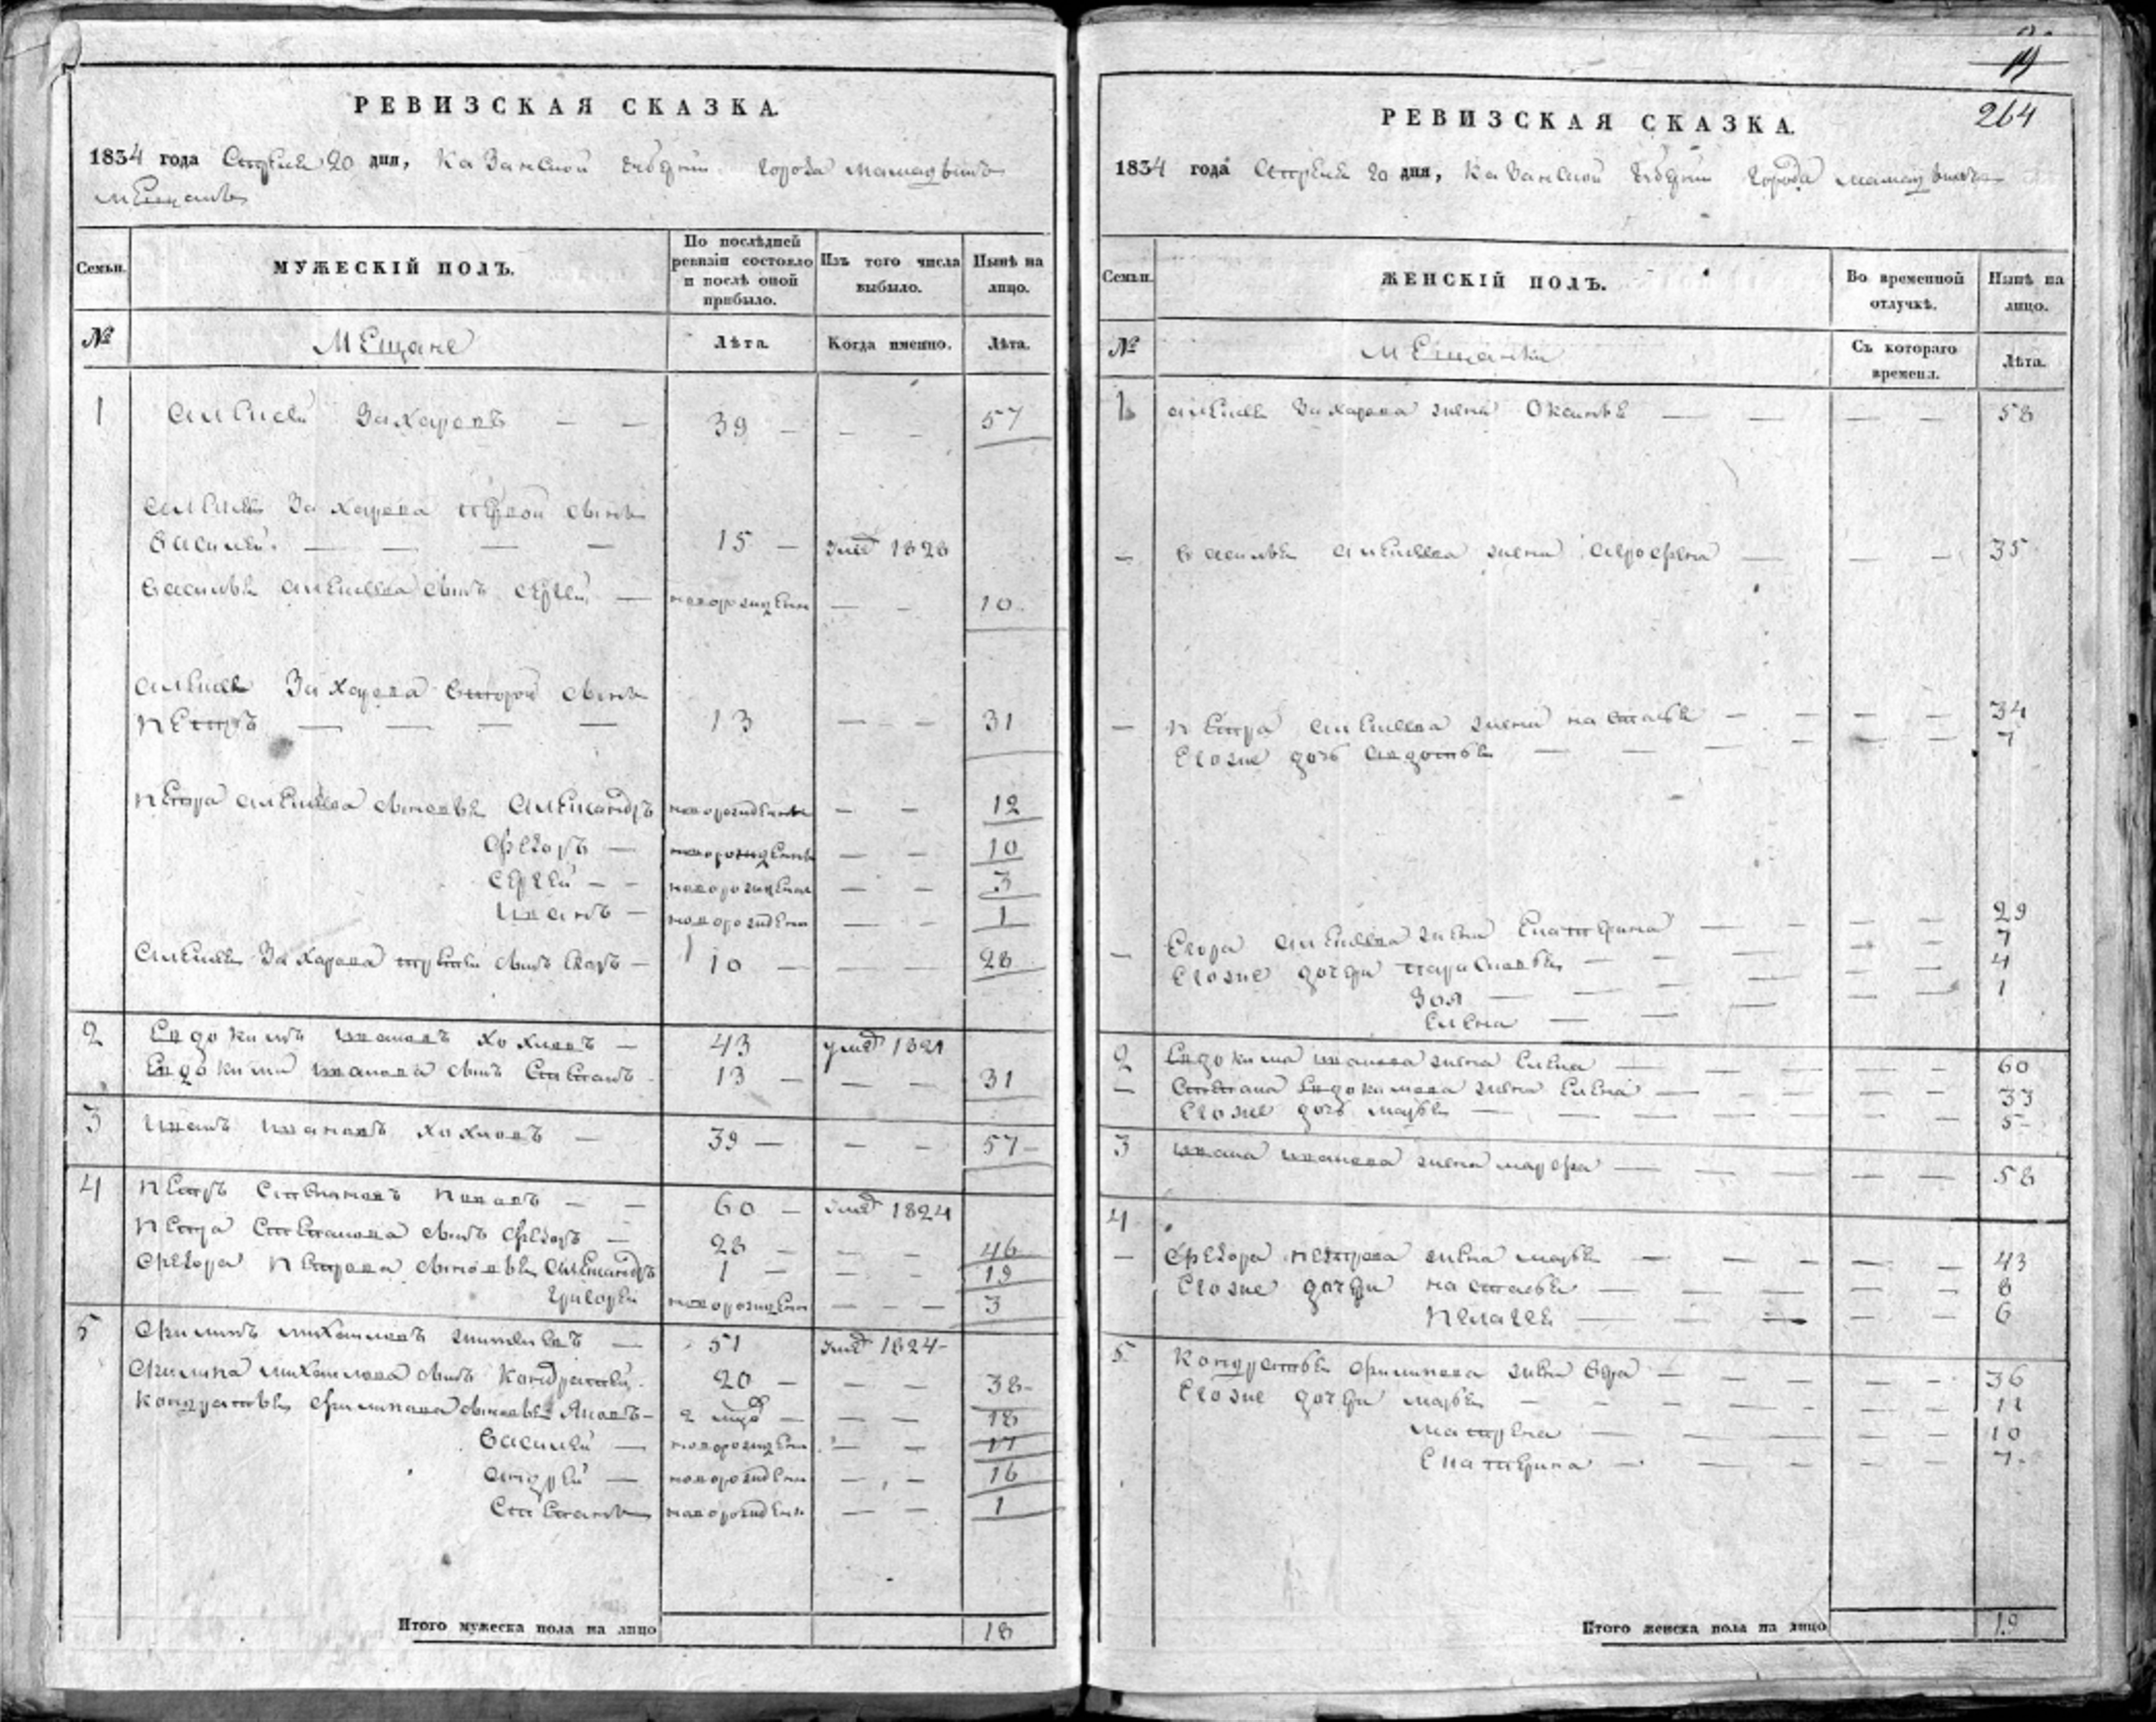 19
264
РЕВИЗСКАЯ СКАЗКА.
1834 года Апреля 20 дня, Казанской губернии города Мамадыша
мещанъ
Семьи.
МУЖЕСКІЙ ПОЛЪ.
По послѣдней ревизіи состояло и послѣ оной прибыло.
Изъ того числа выбыло.
Нынѣ на лицо.
№
Мещане
Лѣта.
Когда именно.
Лѣта.
1 Алексей Захаровъ — — 39 — — — 57
Алексея Захарова первой сынъ
Василей — — — — 15 — умѣ 1828
Василья Алексеева сынъ Сергей — новорожденн — — 10
Алексея Захарова второй сынъ
Петръ — — — — 13 — — 31
Петра Алексеева сыновья Александръ новорожденны — — 12
Федоръ — новорожденны — — 10
Сергей — — новорожденн — — 3
Иванъ — новорожденн — — 1
Алексея Захарова третей сынъ Егоръ — 10 — — — 28
2 Евдокимъ Ивановъ Хохловъ — 43 умѣ 1821
Евдокима Иванова сынъ Степанъ 13 — — — 31
3 Иванъ Ивановъ Хохловъ — 39 — — — 57
4 Петръ Степановъ — — 60 — умѣ 1824
Петра Степанова сынъ Федоръ — 28 — — — 46
Федора Петрова сыновья Александръ 1 — — — 19
Григорей новорожденн — — — 3
5 Филипъ Михайловъ — 51 умѣ 1824
Филипа Михайлова сынъ Кондратей 20 — — — 38
Кондратья Филипова сыновья Яковъ — — — — 18
Василей — новорожденн — — 17
Андрей — новорожденн — — 16
Степанъ новорожденн — — 1
Итого мужеска пола на лицо 18
РЕВИЗСКАЯ СКАЗКА.
1834 года Апреля 20 дня, Казанской губернии города Мамадыша
Семьи.
ЖЕНСКІЙ ПОЛЪ.
Во временной отлучкѣ.
Нынѣ на лицо.
№
Мещанки
Съ котораго времени.
Лѣта.
1 Алексея Захарова жена Оксинья — — — — 58
— Василья Алексеева жена Афросинья — — — 35
— Петра Алексеева жена Настасья — — — — 34
Егоже дочь Авдотья — — — — — 7
— Егора Алексеева жена Екатерина — — — — 29
Егоже дочери — — — — — 7
Зоя — — — — — 4
Елена — — — — — 1
2 Евдокима Иванова жена Елена — — — — — 60
— Степана Евдокимова жена Елена — — — — — 33
Егоже дочь Марья — — — — — — 5
3 Ивана Иванова жена Марфа — — — — — 58
4
— Федора Петрова жена Марья — — — — — 43
Егоже дочери Настасья — — — — — 8
Пелагея — — — — — 6
5 Кондратья Филипова жена Вера — — — — — 36
Егоже дочери Марья — — — — — — 11
Матрена — — — — — 10
Екатерина — — — — — — 7
Итого женска пола на лицо 19